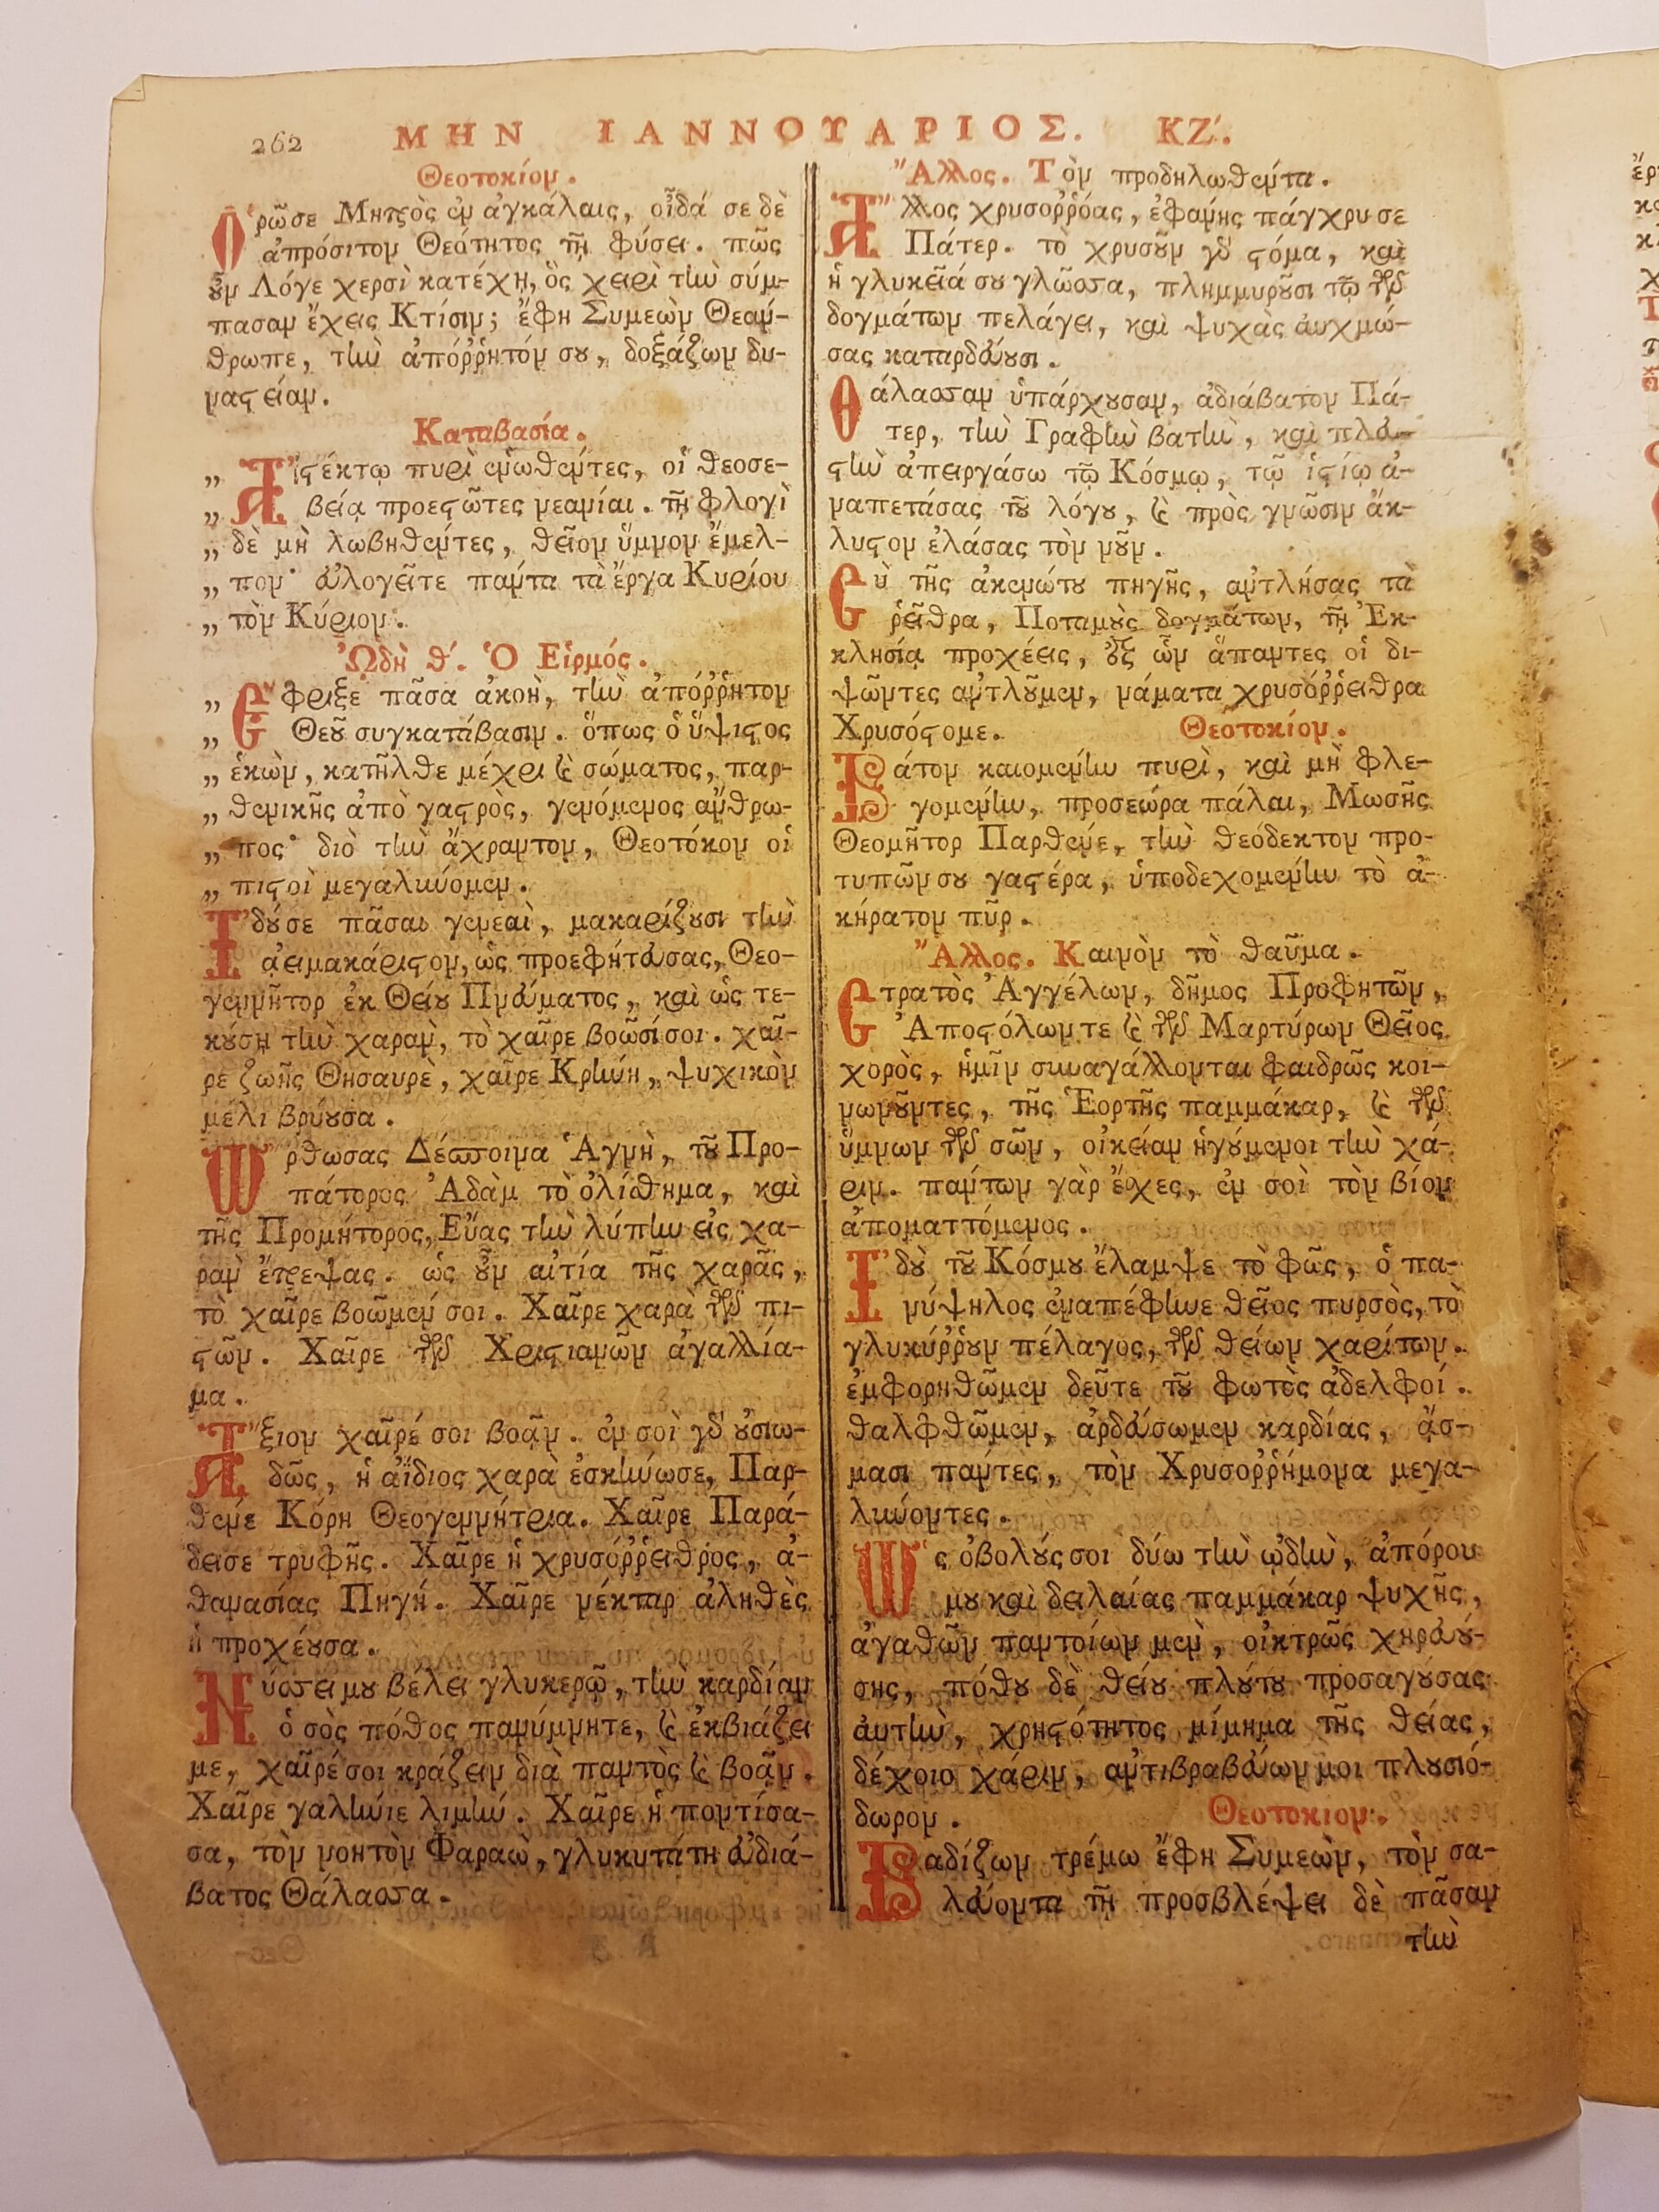 262 ΜΗΝ ΙΑΝΝΟΥΑΡΙΟΣ. ΚΖ΄.
Θεοτοκίον.
Ὁρῶσε Μητρὸς ἐν ἀγκάλαις, οἶδά σε δὲ
ἀπρόσιτον Θεότητος τῇ φύσει. πῶς
οὖν Λόγε χερσὶ κατέχῃ, ὃς χειρὶ τὴν σύμ-
πασαν ἔχεις Κτίσιν; ἔφη Συμεὼν Θεάν-
θρωπε, τὴν ἀπόῤῥητόν σου, δοξάζων δυ-
ναςείαν.
Καταβασία.
„ Ἀϊςέκτῳ πυρὶ ἑνωθέντες, οἱ θεοσε-
„ βείᾳ προεςῶτες νεανίαι. τῇ φλογὶ
„ δὲ μὴ λωβηθέντες, θεῖον ὕμνον ἔμελ-
„ πον· εὐλογεῖτε πάντα τὰ ἔργα Κυρίου
„ τὸν Κύριον.
ᾨδὴ θ΄. Ὁ Εἱρμός.
„ Ἔφριξε πᾶσα ἀκοὴ, τὴν ἀπόῤῥητον
„ Θεοῦ συγκατάβασιν. ὅπως ὁ ὕψιςος
„ ἑκὼν, κατῆλθε μέχρι ϗ σώματος, παρ-
„ θενικῆς ἀπὸ γαςρὸς, γενόμενος ἄνθρω-
„ πος· διὸ τὴν ἄχραντον, Θεοτόκον οἱ
„ πιςοὶ μεγαλύνομεν.
Ἰδού σε πᾶσαι γενεαὶ, μακαρίζουσι τὴν
ἀειμακάριςον, ὡς προεφήτευσας, Θεο-
γεννῆτορ ἐκ Θείου Πνεύματος, καὶ ὡς τε-
κούσῃ τὴν χαρὰν, τὸ χαῖρε βοῶσί σοι. χαῖ-
ρε ζωῆς Θησαυρὲ, χαῖρε Κρήνη, ψυχικὸν
μέλι βρύουσα.
Ὤρθωσας Δέσποινα Ἁγνὴ, τοῦ Προ-
πάτορος Ἀδὰμ τὸ ὀλίσθημα, καὶ
τῆς Προμήτορος, Εὔας τὴν λύπην εἰς χα-
ρὰν ἔτρεψας. ὡς οὖν αἰτία τῆς χαρᾶς,
τὸ χαῖρε βοῶμέν σοι. Χαῖρε χαρὰ τῶν πι-
ςῶν. Χαῖρε τῶν Χριςιανῶν ἀγαλλία-
μα.
Ἄξιον χαῖρέ σοι βοᾷν. ἐν σοὶ γὰρ οὐσιω-
δῶς, ἡ ἀΐδιος χαρὰ ἐσκήνωσε, Παρ-
θένε Κόρη Θεογεννήτρια. Χαῖρε Παρά-
δεισε τρυφῆς. Χαῖρε ἡ χρυσόῤῥειθρος, ἀ-
θανασίας Πηγή. Χαῖρε νέκταρ ἀληθὲς
ἡ προχέουσα.
Νύσσει μου βέλει γλυκερῷ, τὴν καρδίαν
ὁ σὸς πόθος πανύμνητε, ϗ ἐκβιάζει
με, χαῖρέ σοι κράζειν διὰ παντὸς ϗ βοᾷν.
Χαῖρε γαλήνιε λιμήν. Χαῖρε ἡ ποντίσα-
σα, τὸν νοητὸν Φαραὼ, γλυκυτάτη εὐδιά-
βατος Θάλασσα.
Ἄλλος. Τὸν προδηλωθέντα.
Ἄλλος χρυσοῤῥόας, ἐφάνης πάγχρυσε
Πάτερ. τὸ χρυσοῦν γὰρ ςόμα, καὶ
ἡ γλυκεῖά σου γλῶσσα, πλημμυροῦσι τῷ τῶν
δογμάτων πελάγει, καὶ ψυχὰς αὐχμώ-
σας καταρδεύουσι.
Θάλασσαν ὑπάρχουσαν, ἀδιάβατον Πά-
τερ, τὴν Γραφὴν βατὴν, καὶ πλευ-
ςὴν ἀπειργάσω τῷ Κόσμῳ, τῷ ἱςίῳ ἀ-
ναπετάσας τοῦ λόγου, ϗ πρὸς γνῶσιν ἄκ-
λυςον ἐλάσας τὸν νοῦν.
Σὺ τῆς ἀκενώτου πηγῆς, ἀντλήσας τὰ
ῥεῖθρα, Ποταμοὺς δογμάτων, τῇ Ἐκ-
κλησίᾳ προχέεις, ἐξ ὧν ἅπαντες οἱ δι-
ψῶντες ἀντλοῦμεν, νάματα χρυσόῤῥειθρα
Χρυσόςομε. Θεοτοκίον.
Βάτον καιομένην πυρὶ, καὶ μὴ φλε-
γομένην, προσεώρα πάλαι, Μωσῆς
Θεομῆτορ Παρθένε, τὴν θεόδεκτον προ-
τυπῶν σου γαςέρα, ὑποδεχομένην τὸ ἀ-
κήρατον πῦρ.
Ἄλλος. Καινὸν τὸ θαῦμα.
Στρατὸς Ἀγγέλων, δῆμος Προφητῶν,
Ἀποςόλων τε ϗ τῶν Μαρτύρων Θεῖος
χορὸς, ἡμῖν συναγάλλονται φαιδρῶς κοι-
νωνοῦντες, τῆς Ἑορτῆς παμμάκαρ, ϗ τῶν
ὕμνων τῶν σῶν, οἰκείαν ἡγούμενοι τὴν χά-
ριν. πάντων γὰρ ἔσχες, ἐν σοὶ τὸν βίον
ἀποματτόμενος.
Ἰδοὺ τοῦ Κόσμου ἔλαμψε τὸ φῶς, ὁ πα-
νύψηλος ἐναπέφηνε θεῖος πυρσὸς, τὸ
γλυκύῤῥουν πέλαγος, τῶν θείων χαρίτων.
ἐμφορηθῶμεν δεῦτε τοῦ φωτὸς ἀδελφοί.
θαλφθῶμεν, ἀρδεύσωμεν καρδίας, ᾄσ-
μασι πάντες, τὸν Χρυσοῤῥήμονα μεγα-
λύνοντες.
Ὡς ὀβολούς σοι δύω τὴν ᾠδὴν, ἀπόρου
μου καὶ δειλαίας παμμάκαρ ψυχῆς,
ἀγαθῶν παντοίων μὲν, οἰκτρῶς χηρευού-
σης, πόθου δὲ θείου πλούτου προσαγούσας
αὐτὴν, χρηςότητος μίμημα τῆς θείας,
δέχοιο χάριν, ἀντιβραβεύων μοι πλουσιό-
δωρον. Θεοτοκιον.
Βαδίζων τρέμω ἔφη Συμεὼν, τὸν σα-
λεύοντα τῇ προσβλέψει δὲ πᾶσαν
τὴν